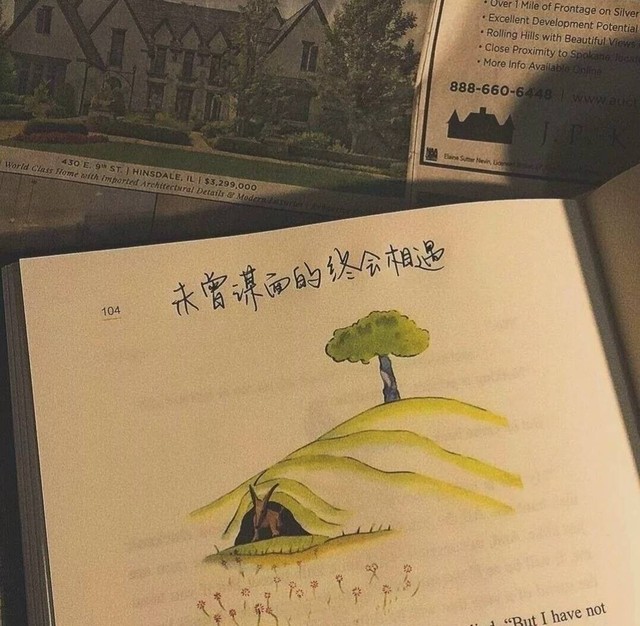 • Over 1 Mile of Frontage on Silver
• Excellent Development Potential
• Rolling Hills with Beautiful Views
• Close Proximity to Spokane,
• More Info Available Online
888-660-6448 | www.au
JPK
Elaine Sutter Nevin,
430 E. 9th ST. | HINSDALE, IL | $3,299,000
World Class Home with Imported Architectural Details & Modern
104
未曾谋面的终会相遇
"But I have not